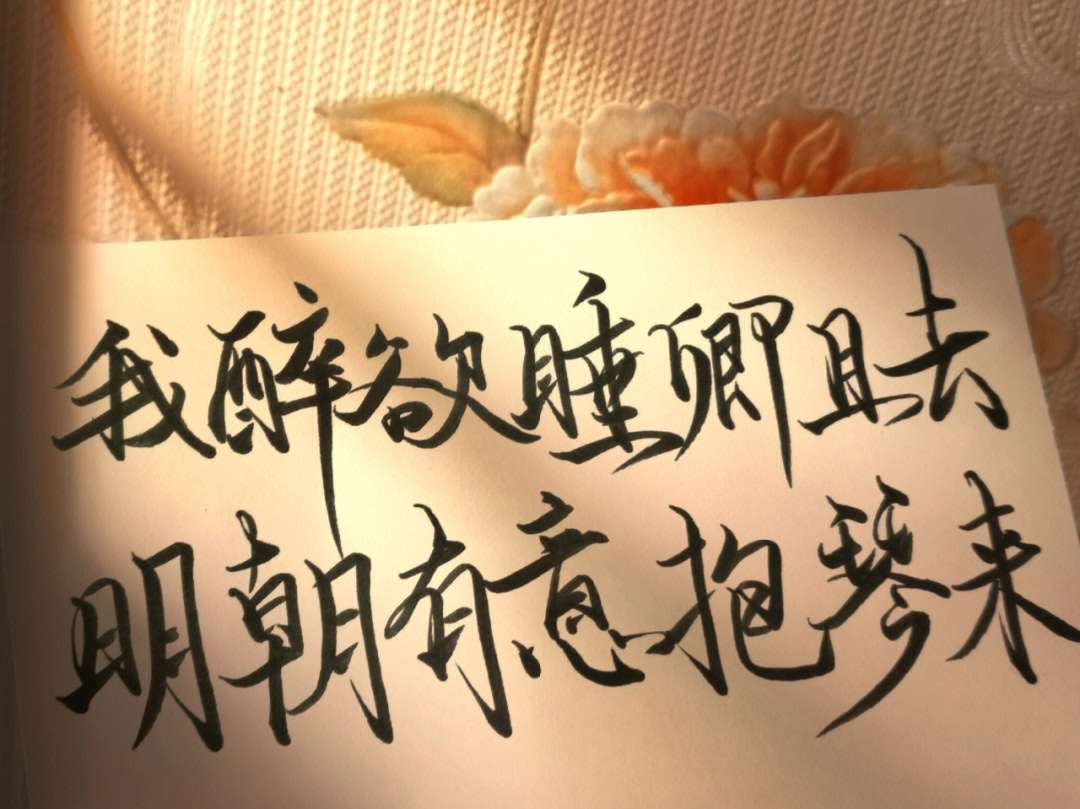 我醉欲睡卿且去
明朝有意抱琴来